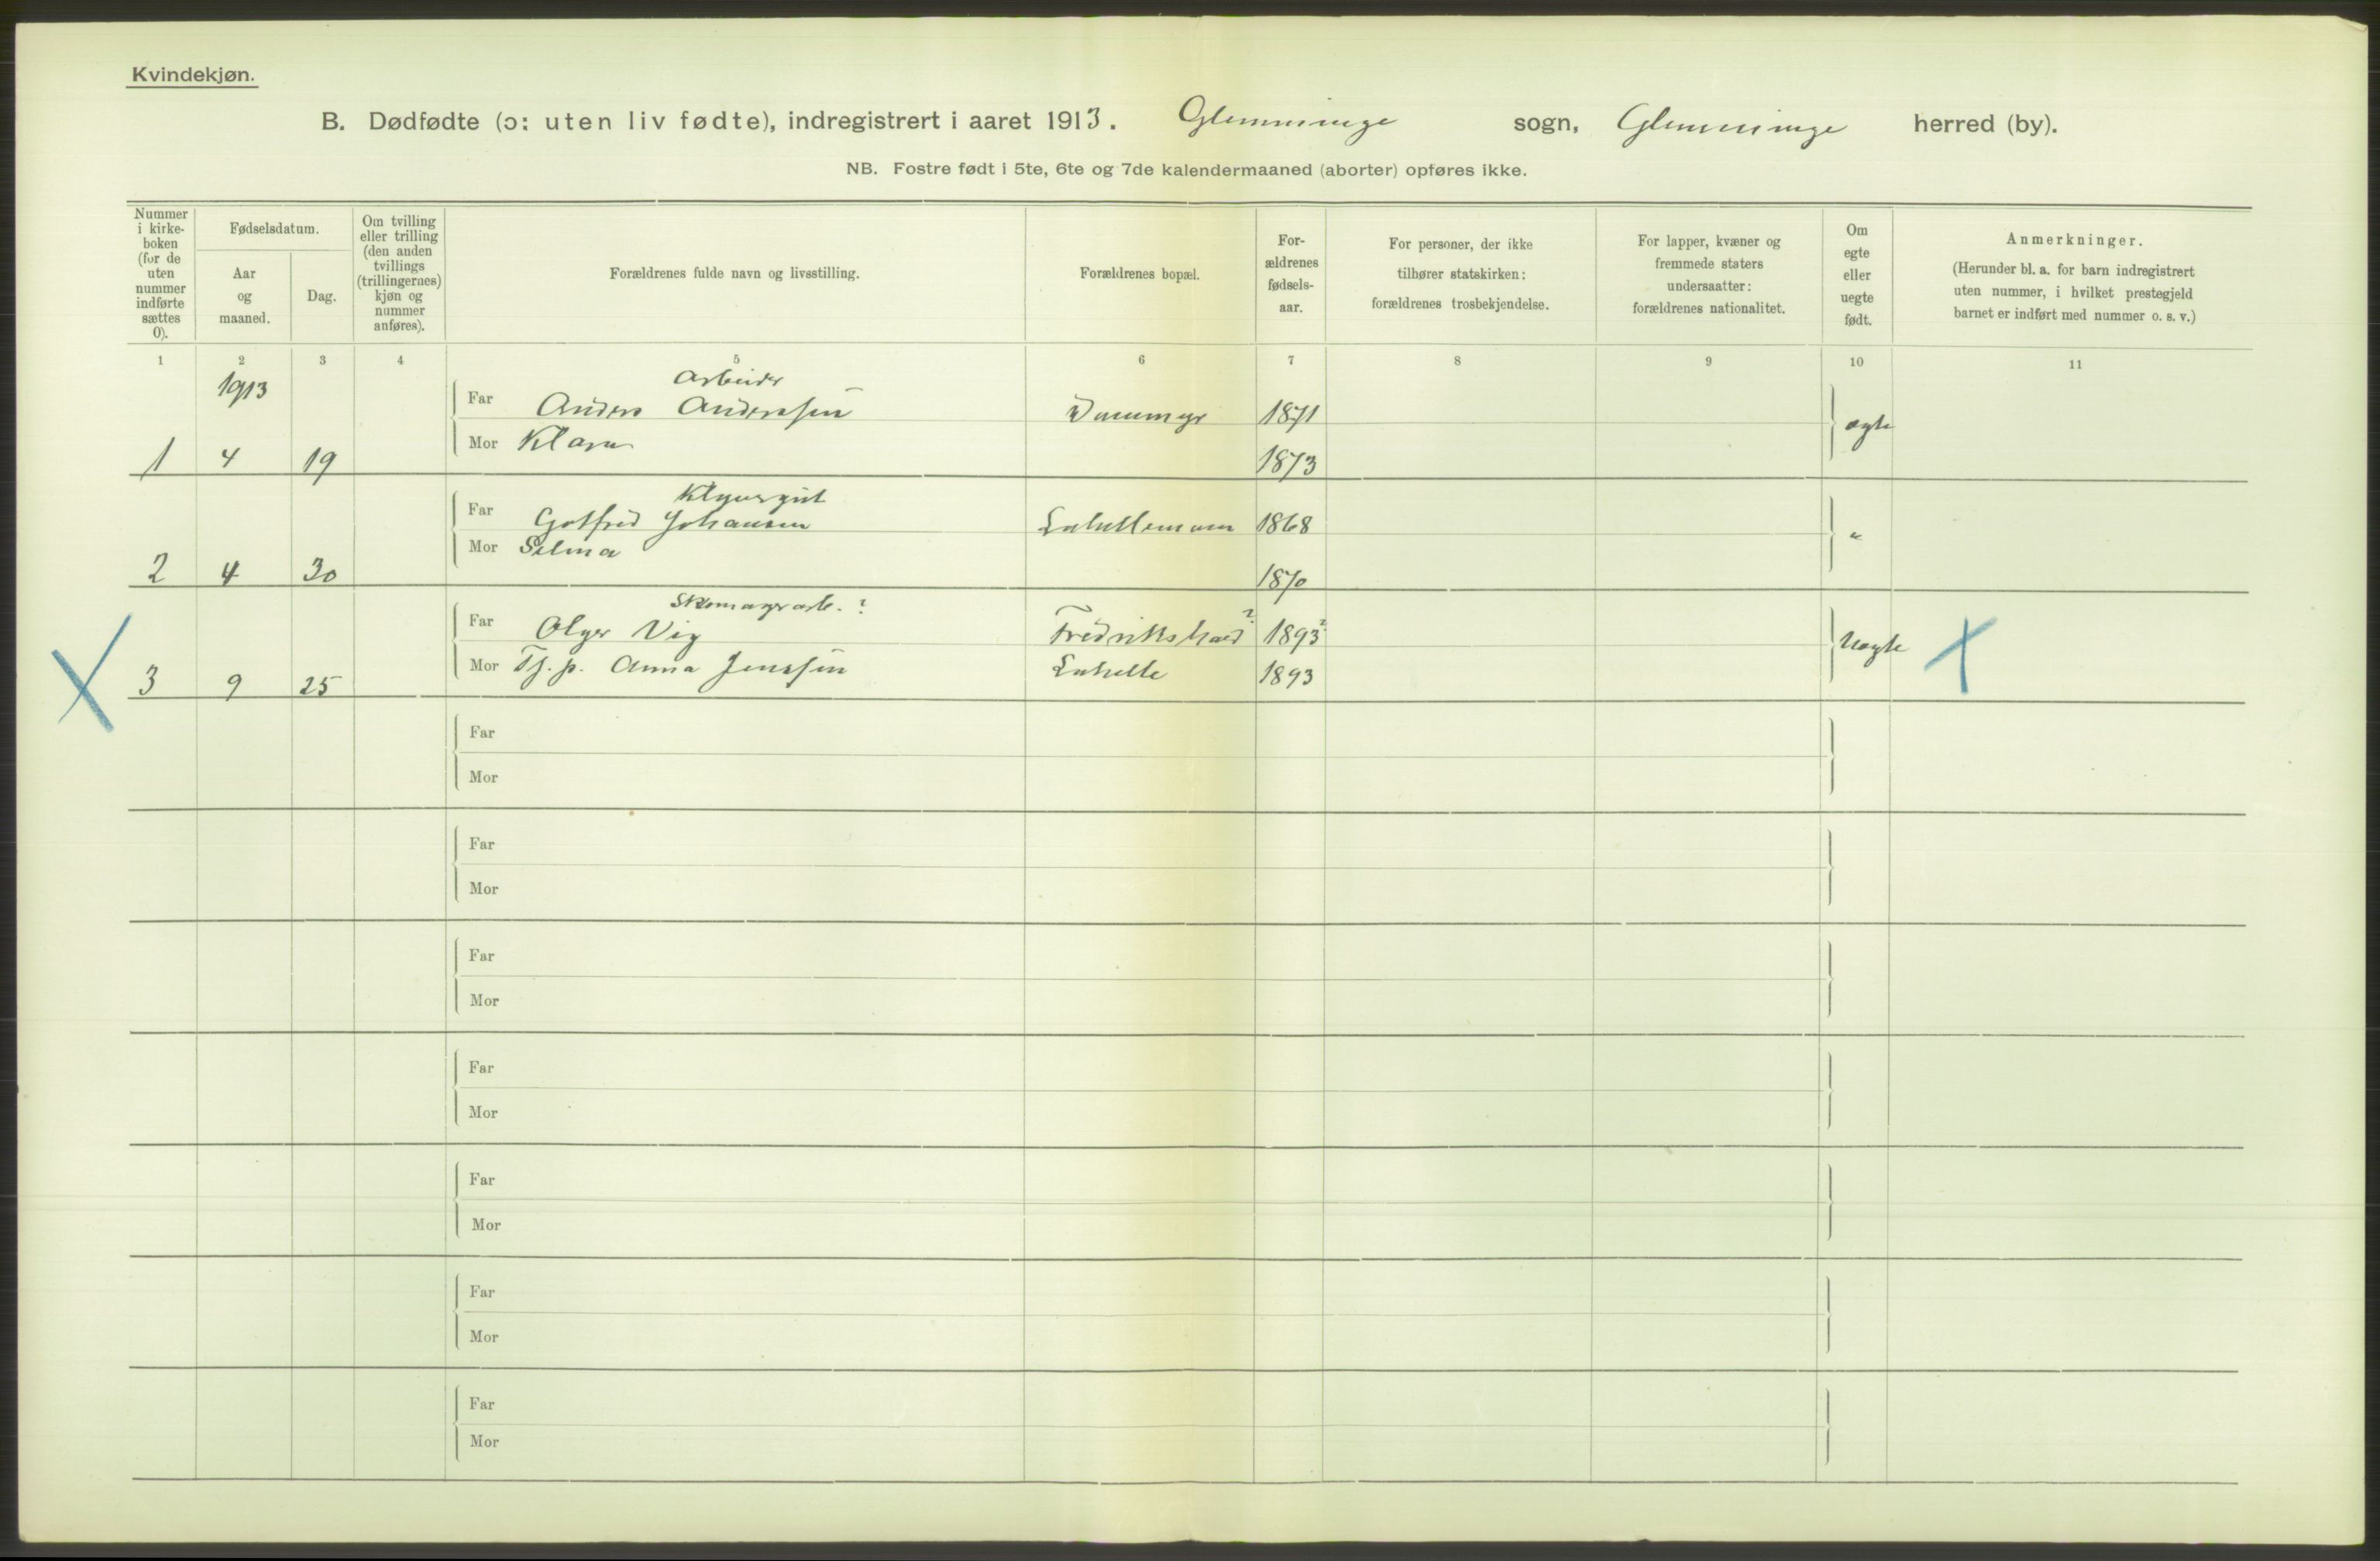 Kvindekjøn.
B. Dødfødte (ɔ: uten liv fødte), indregistrert i aaret 1913. Glemminge sogn, Glemminge herred (by).
NB. Fostre født i 5te, 6te og 7de kalendermaaned (aborter) opføres ikke.
Nummer
i kirke-
boken
(for de
uten
nummer
indførte
sættes
0).
Fødselsdatum.
Aar
og
maaned.
Dag.
Om tvilling
eller trilling
(den anden
tvillings
(trillingernes)
kjøn og
nummer
anføres).
Forældrenes fulde navn og livsstilling.
Forældrenes bopæl.
For-
ældrenes
fødsels-
aar.
For personer, der ikke
tilhører statskirken:
forældrenes trosbekjendelse.
For lapper, kvæner og
fremmede staters
undersaatter:
forældrenes nationalitet.
Om
egte
eller
uegte
født.
Anmerkninger.
(Herunder bl. a. for barn indregistrert
uten nummer, i hvilket prestegjeld
barnet er indført med nummer o. s. v.)
1 2 3 4 5 6 7 8 9 10 11
1913
Arbeider
Far Anders Anderssen 1871
Mor Klara 1873
1 4 19 ægte
Far Gotfred Johansen 1868
Mor Selma 1870
2 4 30 "
Skomagerarb. ?
Far Olger Vig Fredrikshald ? 1893 ?
Mor Tj. p. Anna Jenssen Labelle 1893
3 9 25 Uægte
Far
Mor
Far
Mor
Far
Mor
Far
Mor
Far
Mor
Far
Mor
Far
Mor